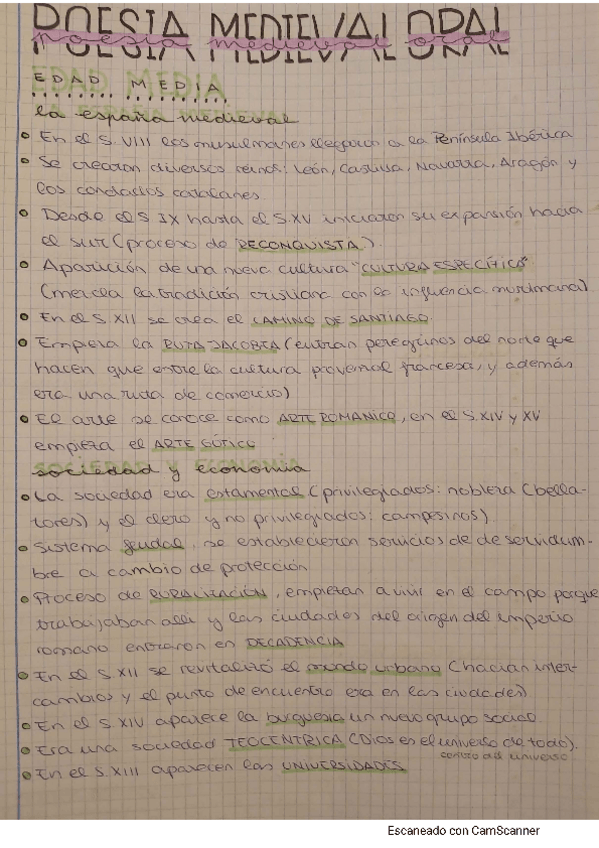 POESIA MEDIEVAL ORAL
poesia medieval oral
EDAD MEDIA
la españa medieval
• En el S.VIII los musulmanes llegaron a la Península Ibérica
• Se crearon diversos reinos: León, Castilla, Navarra, Aragón y
los condados catalanes
• Desde el S IX hasta el S.XV iniciaron su expansión hacia
el sur (proceso de RECONQUISTA.)
• Aparición de una nueva cultura "CULTURA ESPECÍFICA"
(mezcla la tradición cristiana con la influencia musulmana)
• En el S. XII se crea el CAMINO DE SANTIAGO.
• Empieza la RUTA JACOBEA (entran peregrinos del norte que
hacen que entre la cultura provenzal francesa, y además
era una ruta de comercio)
• El arte se conoce como ARTE ROMANICO, en el S.XIV y XV
empieza el ARTE GÓTICO
sociedad y economía
• La sociedad era estamental (privilegiados: nobleza (bella-
tores) y el clero y no privilegiados: campesinos)
• Sistema feudal, se establecieron servicios de de servidum-
bre a cambio de protección
• Proceso de RURALIZACIÓN, empiezan a vivir en el campo porque
trabajaban allí y las ciudades del origen del imperio
romano entraron en DECADENCIA
• En el S XII se revitalizó el mundo urbano (hacían inter-
cambios y el punto de encuentro era en las ciudades)
• En el S XIV aparece la burguesía un nuevo grupo social
• Era una sociedad TEOCENTRICA (Dios es el universo de todo).
centro del universo
• En el S. XIII aparecen las UNIVERSIDADES
Escaneado con CamScanner